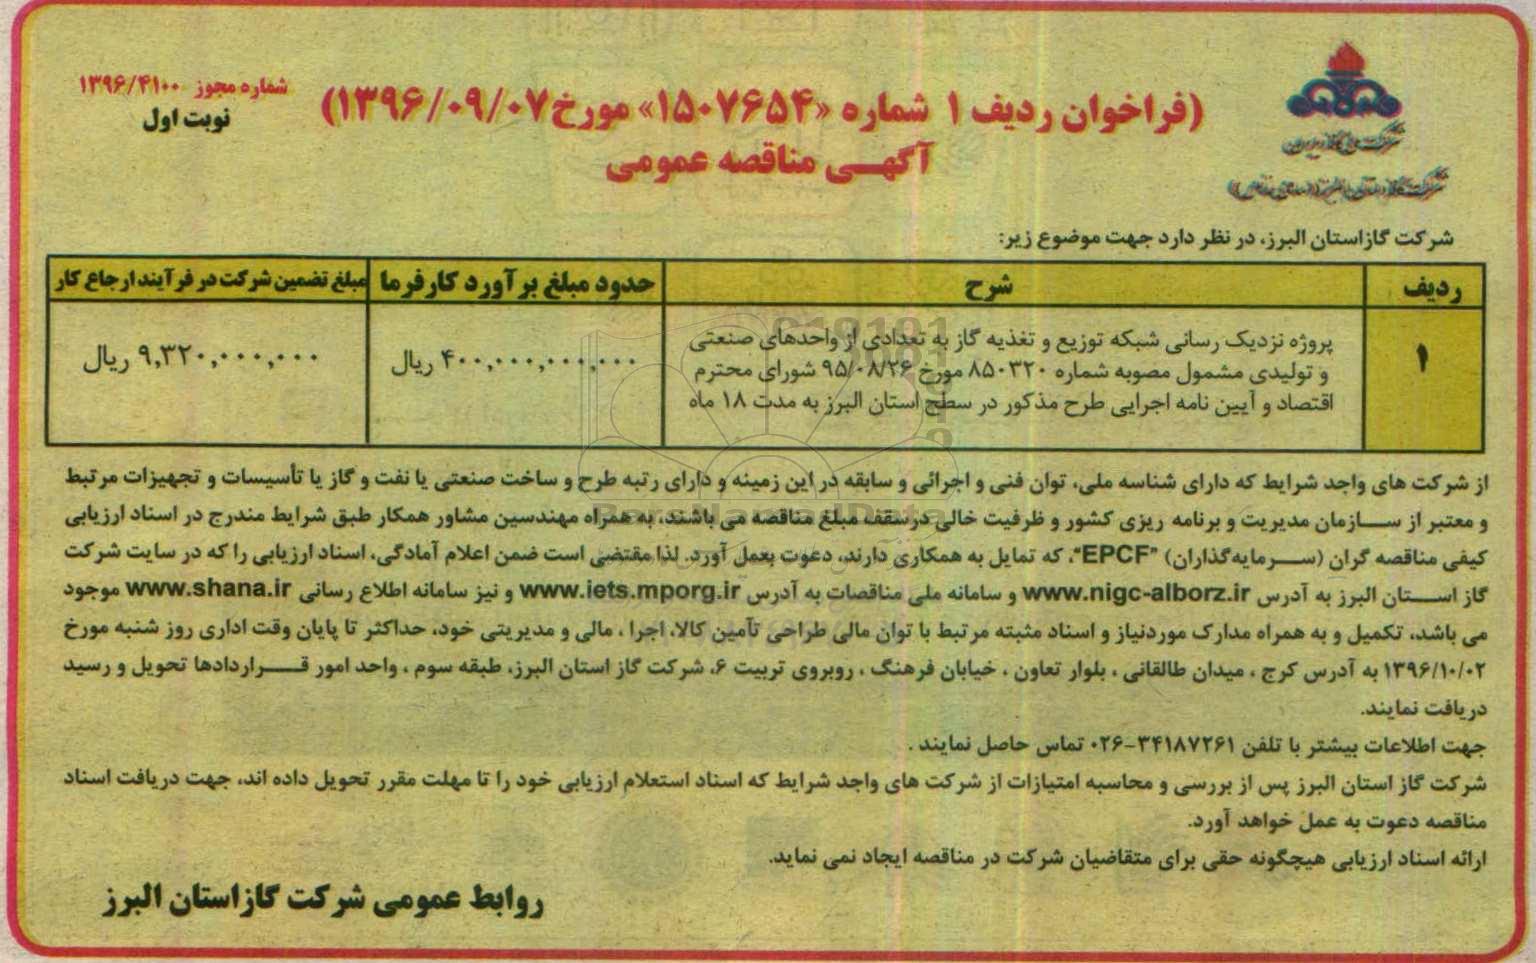 شماره مجوز ۱۳۹۶/۴۱۰۰
نوبت اول
(فراخوان ردیف ۱ شماره «۱۵۰۷۶۵۴» مورخ ۱۳۹۶/۰۹/۰۷)
آگهـی مناقصه عمومی
شرکت ملی گاز ایران
شرکت گازاستان البرز، در نظر دارد جهت موضوع زیر:
ردیف شرح حدود مبلغ برآورد کارفرما مبلغ تضمین شرکت در فرآیند ارجاع کار
۱ پروژه نزدیک رسانی شبکه توزیع و تغذیه گاز به تعدادی از واحدهای صنعتی ۴۰۰,۰۰۰,۰۰۰,۰۰۰ ریال ۹,۳۲۰,۰۰۰,۰۰۰ ریال
و تولیدی مشمول مصوبه شماره ۸۵۰۳۲۰ مورخ ۹۵/۰۸/۲۶ شورای محترم
اقتصاد و آیین نامه اجرایی طرح مذکور در سطح استان البرز به مدت ۱۸ ماه
از شرکت های واجد شرایط که دارای شناسه ملی، توان فنی و اجرائی و سابقه در این زمینه و دارای رتبه طرح و ساخت صنعتی یا نفت و گاز یا تأسیسات و تجهیزات مرتبط
و معتبر از سـازمان مدیریت و برنامه ریزی کشور و ظرفیت خالی درسقف مبلغ مناقصه می باشند، به همراه مهندسین مشاور همکار طبق شرایط مندرج در اسناد ارزیابی
کیفی مناقصه گران (سـرمایه‌گذاران) "EPCF"، که تمایل به همکاری دارند، دعوت بعمل آورد. لذا مقتضی است ضمن اعلام آمادگی، اسناد ارزیابی را که در سایت شرکت
گاز اسـتان البرز به آدرس www.nigc-alborz.ir و سامانه ملی مناقصات به آدرس www.iets.mporg.ir و نیز سامانه اطلاع رسانی www.shana.ir موجود
می باشد، تکمیل و به همراه مدارک موردنیاز و اسناد مثبته مرتبط با توان مالی طراحی تأمین کالا، اجرا ، مالی و مدیریتی خود، حداکثر تا پایان وقت اداری روز شنبه مورخ
۱۳۹۶/۱۰/۰۲ به آدرس کرج ، میدان طالقانی ، بلوار تعاون ، خیابان فرهنگ ، روبروی تربیت ۶، شرکت گاز استان البرز، طبقه سوم ، واحد امور قـراردادها تحویل و رسید
دریافت نمایند.
جهت اطلاعات بیشتر با تلفن ۳۴۱۸۷۲۶۱-۰۲۶ تماس حاصل نمایند .
شرکت گاز استان البرز پس از بررسی و محاسبه امتیازات از شرکت های واجد شرایط که اسناد استعلام ارزیابی خود را تا مهلت مقرر تحویل داده اند، جهت دریافت اسناد
مناقصه دعوت به عمل خواهد آورد.
ارائه اسناد ارزیابی هیچگونه حقی برای متقاضیان شرکت در مناقصه ایجاد نمی نماید.
روابط عمومی شرکت گازاستان البرز